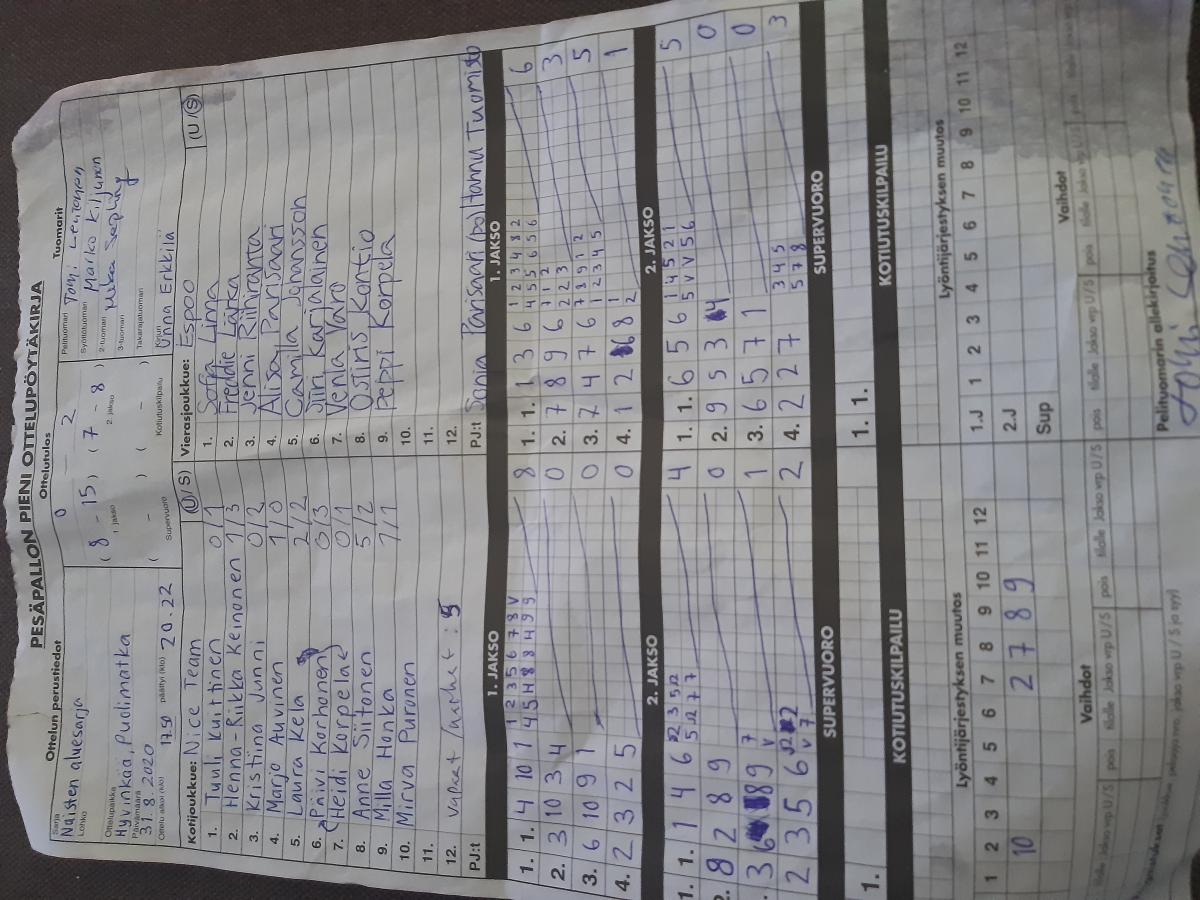 PESÄPALLON PIENI OTTELUPÖYTÄKIRJA
Ottelun perustiedot
Ottelutulos
Tuomarit
Sarja
Naisten aluesarja
Lohko
Ottelupaikka
Hyvinkää, Puolimatka
Päivämäärä
31.8. 2020
Ottelu alkoi (klo) 17.59 päättyi (klo) 20.22
0 — 2
( 8 - 15 ) ( 7 - 8 )
1. jakso 2. jakso
( - ) ( - )
Supervuoro Kotiutuskilpailu
Pelituomari Tomi Leutonen
Syöttötuomari Marko Kiljunen
2-tuomari Mika Sepling
3-tuomari
Takarajatuomari
Kirjuri Unna Erkkilä
Kotijoukkue: Nice Team (U/S)
1. Tuuli Kuitinen 0/1
2. Henna-Riikka Keinonen 1/3
3. Kristiina Junni 0/2
4. Marjo Auvinen 1/0
5. Laura Kela 2/2
6. Päivi Korhonen 0/3
7. Heidi Korpela 0/1
8. Anne Siitonen 5/2
9. Milla Honka 1/1
10. Mirva Puronen
11.
12. vapaat /
PJ:t
Vierasjoukkue: Espoo (U/S)
1. Sofia Lima
2. Freddie Latka
3. Jenni Riihiranta
4. Alisa Parisaari
5. Camilla Johansson
6. Siiri Karjalainen
7. Venla Varo
8. Osiris Kontio
9. Peppi Korpela
10.
11.
12.
PJ:t Sanja Parisaari/polttannu Tuomisto
1. JAKSO
1 2 3 5 6 7 8 V
1. 1. 4 10 1 4 5 4 8 8 4 9 9 8
2. 3 10 3 4 0
3. 6 10 9 1 0
4. 2 3 2 5 0
1. JAKSO
1 2 3 4 8 2
1. 1. 1 3 6 4 5 5 6 5 6 6
7 1 2
2. 7 8 9 6 2 2 3 3
7 8 9 1 2
3. 7 4 7 6 1 2 3 4 5 5
1
4. 1 2 8 2 1
2. JAKSO
1. 1. 1 4 6 4
8 2 8 9 0
3 8 9 7 V 1
2 3 5 6 V 7 2
2. JAKSO
1 4 5 2 1
1. 1. 6 5 6 5 V V 5 6 5
2. 9 5 3 4 0
3. 6 5 7 1 0
3 4 5
4. 2 2 7 5 7 8 3
SUPERVUORO
SUPERVUORO
1.
1. 1.
KOTIUTUSKILPAILU
KOTIUTUSKILPAILU
Lyöntijärjestyksen muutos
1 2 3 4 5 6 7 8 9 10 11 12
10 2 7 8 9
Lyöntijärjestyksen muutos
1.J 1 2 3 4 5 6 7 8 9 10 11 12
2.J
Sup
Vaihdot
tilalle Jakso vrp U/S pois tilalle Jakso vrp U/S pois tilalle Jakso vrp U/S
Vaihdot
pois tilalle Jakso vrp U/S pois tilalle Jakso vrp U/S pois
Pelituomarin allekirjoitus